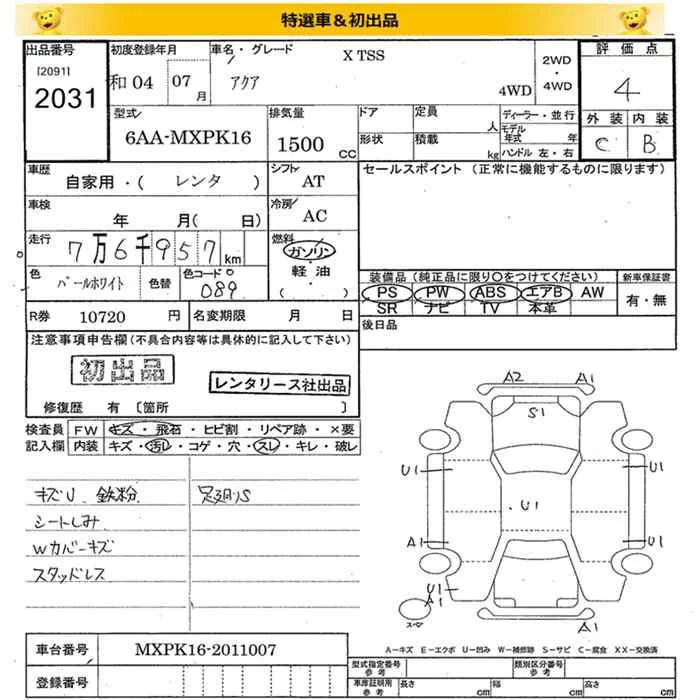 特選車＆初出品
出品番号
[2091]
2031
初度登録年月
和04 07 月
車名・グレード
X TSS
アクア
4WD
2WD
・
4WD
評価点
4
外装 内装
C B
型式
6AA-MXPK16
排気量
1500 CC
ドア
形状
定員 人
積載 kg
ディーラー・並行
モデル年式 年
ハンドル 左・右
車歴
自家用・( レンタ )
シフト
AT
セールスポイント (正常に機能するものに限ります)
車検
年 月( 日)
冷房
AC
走行
7万6千957km
燃料
ガソリン
軽・油
( )
色
パールホワイト
色替
色コード
089
装備品 (純正品に限り〇をつけてください)
PS PW ABS エアB AW
SR ナビ TV 本革
新車保証書
有・無
R券 10720 円
名変期限 月 日
後日品
注意事項申告欄(不具合内容等は具体的に記入して下さい)
初出品
レンタリース社出品
修復歴 有 [箇所 ]
検査員記入欄
FW キズ・飛石・ヒビ割・リペア跡・×要
内装 キズ・汚レ・コゲ・穴・スレ・キレ・破レ
キズU 鉄粉
シートしみ
Wカバーキズ
スタッドレス
足廻りS
A2 A1
S1
U1 U1
U1
A1 U1
U1
A1
スペア
A1
A－キズ E－エクボ U－凹み W－補修跡 S－サビ C－腐食 XX－交換済
車台番号 MXPK16-2011007
登録番号
型式指定番号
参考
類別区分番号
参考
車庫証明用
参考
長さ cm 幅 cm 高さ cm